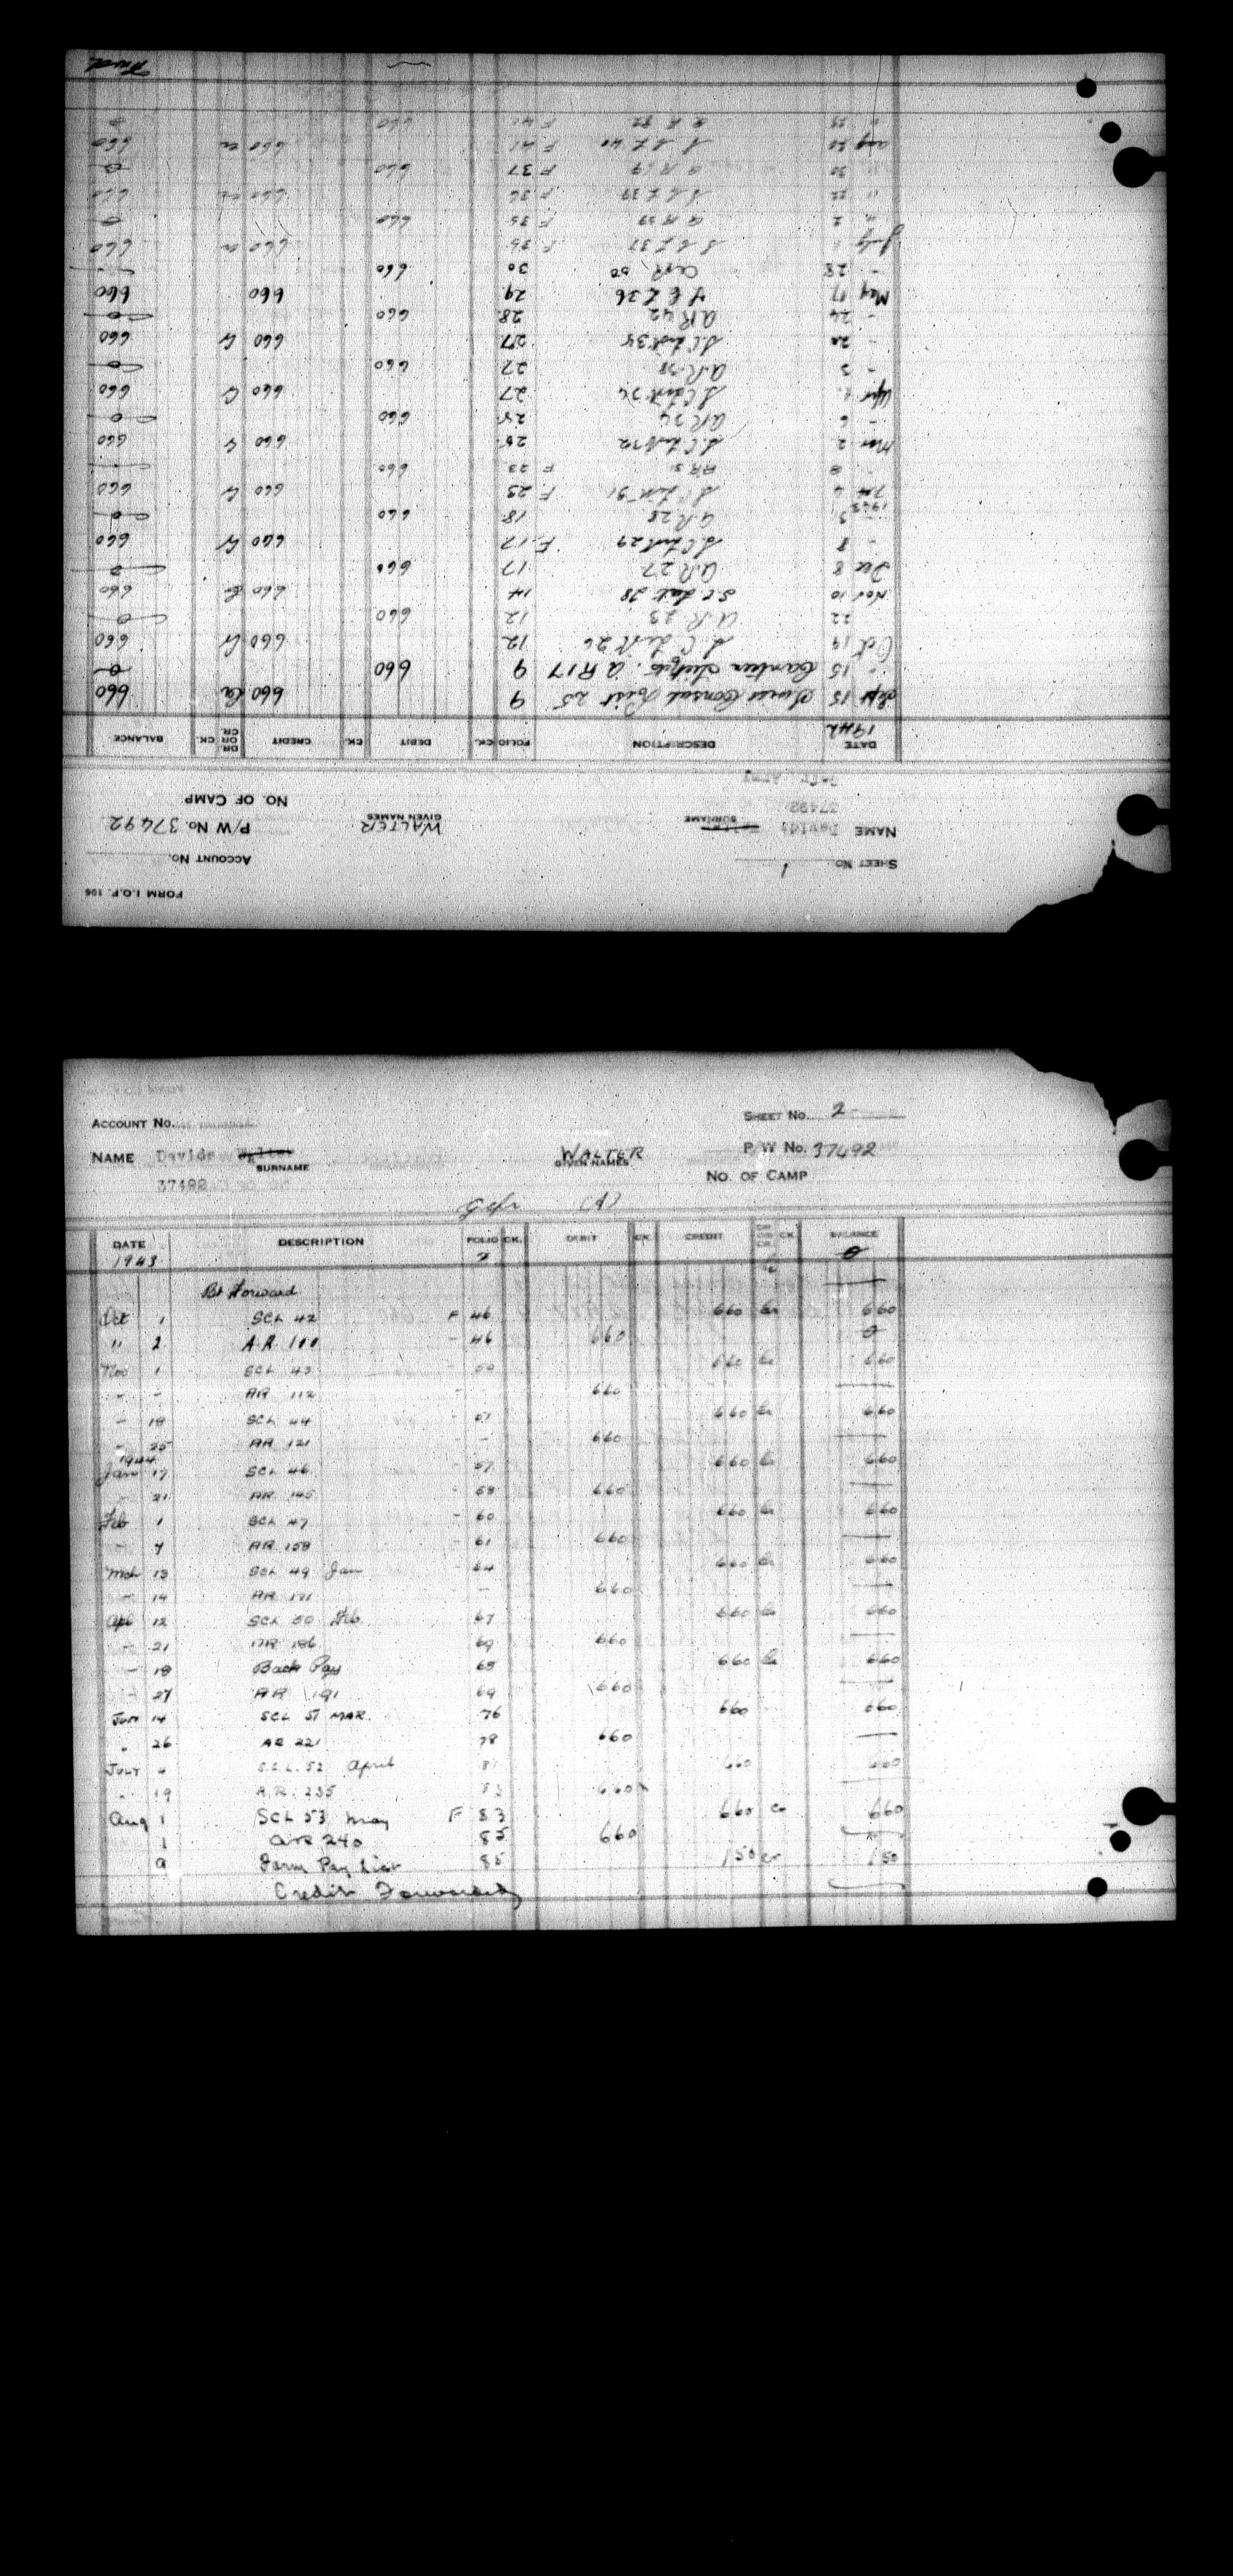 FORM I.O.F. 106
SHEET No. 1 ACCOUNT No.
NAME Davids SURNAME WALTER GIVEN NAMES P/W No. 37492
37492 NO. OF CAMP
DATE DESCRIPTION FOLIO CK. DEBIT CK. CREDIT DR OR CR CK. BALANCE
1942
Sept 15 Swiss Consul List 25 9 660 Cr 660
15 Canteen Tickets. A R 17 9 660 0
Oct 19 S.C. List 26 12 660 Cr 660
22 A.R. 23 12 660 0
Nov 10 S.C. List 28 14 660 Cr 660
Dec 8 A.R. 27 17 660 0
- 8 S.C. List 29 F. 17 660 Cr 660
1943
5 A.R. 28 18 660 0
Feb 4 S.C. List 31 F. 23 660 Cr 660
8 AR F 23 660
Mar 2 S.C. List 32 25 660 Cr 660
- 6 A.R. 25 660 0
Apr 1 S.C. List 27 660 C 660
- 5 A.R. 27 660 0
- 20 S.C. List 35 27 660 Cr 660
- 24 A.R. 42 28 660 0
May 17 36 29 660 660
- 28 A.R. 50 30 660
July 1 S.C.L 37 F. 35 660 Cr 660
" 2 A R 59 F 35 660 0
" 22 S.C.L 39 F. 36 660 Cr 660
" 30 A R 69 F 37 660 0
Aug S.C.L 40 F. 41 660 Cr 660
" A R F 41 660 0
ACCOUNT No. SHEET No. 2
NAME Davids SURNAME WALTER GIVEN NAMES P/W No. 37492
37492 NO. OF CAMP
Gefr (A)
DATE DESCRIPTION FOLIO CK. DEBIT CK. CREDIT DR OR CR CK. BALANCE
1943 2 0
Bt Forward
Oct 1 SCL 42 F 46 660 Cr 660
" 2 A.R. 100 - 46 660 0
Nov 1 SCL 43 - 50 660 Cr 660
- - AR 112 - 660
- 19 SCL 44 - 51 660 Cr 660
- 25 AR 121 - - 660
1944
Jan 17 SCL 46 - 57 660 Cr 660
- 21 AR 145 - 58 660
Feb 1 SCL 47 - 60 660 Cr 660
- 7 AR 158 - 61 660
Mch 13 SCL 49 Jan - 64 660 Cr 660
- 14 AR 171 - 660
Apl 12 SCL 50 Feb 67 660 Cr 660
- 21 AR 186 69 660
- 18 Back Pay 68 660 Cr 660
- 27 AR 191 69 660
Jun 14 SCL 51 MAR. 76 660 660
" 26 AR 221 78 660
JULY 4 S.C.L. 52 April 81 660 660
" 19 A.R. 235 83 660
Aug 1 SCL 53 May F 83 660 Cr 660
1 AR 240 85 660
9 Farm Pay List 85 150 Cr 150
Credit Forwarded